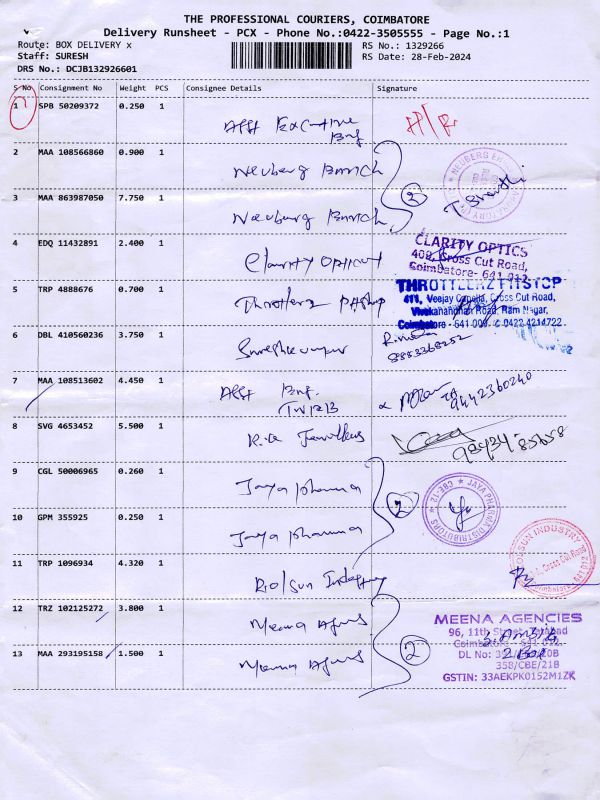 THE PROFESSIONAL COURIERS, COIMBATORE
Delivery Runsheet - PCX - Phone No.:0422-3505555 - Page No.:1
Route: BOX DELIVERY x
RS No.: 1329266
Staff: SURESH
RS Date: 28-Feb-2024
DRS No.: DCJB132926601
S No. Consignment No Weight PCS Consignee Details Signature
1 SPB 50209372 0.250 1
Asst Executive
2 MAA 108566860 0.900 1 Neuberg Branch
3 MAA 863987050 7.750 1 Neuburg Branch
2
4 EDQ 11432891 2.400 1
CLARITY OPTICS
408, Cross Cut Road,
Coimbatore - 641 012
5 TRP 4888676 0.700 1
THROTTLERZ PITSTOP
411, Veejay Capella, Cross Cut Road,
Vivekanandhan Road, Ram Nagar,
Coimbatore - 641 009. 0422 4214722
6 DBL 410560236 3.750 1 Sureshkumar
8883368252
7 MAA 108513602 4.450 1 Asst Eng. 9442360240
8 SVG 4653452 5.500 1
98434-85658
9 CGL 50006965 0.260 1 Jaya pharma
JAYA PHARMA DISTRIBUTORS CBE-12
2
10 GPM 355925 0.250 1 Jaya pharma
11 TRP 1096934 4.320 1 Rolsun
ROLSUN INDUSTRY
12 TRZ 102125272 3.800 1 Meena
13 MAA 293195158 1.500 1 Meena
2
MEENA AGENCIES
96, 11th Street,
DL No:
358/CBE/21B
GSTIN: 33AEKPK0152M1ZK